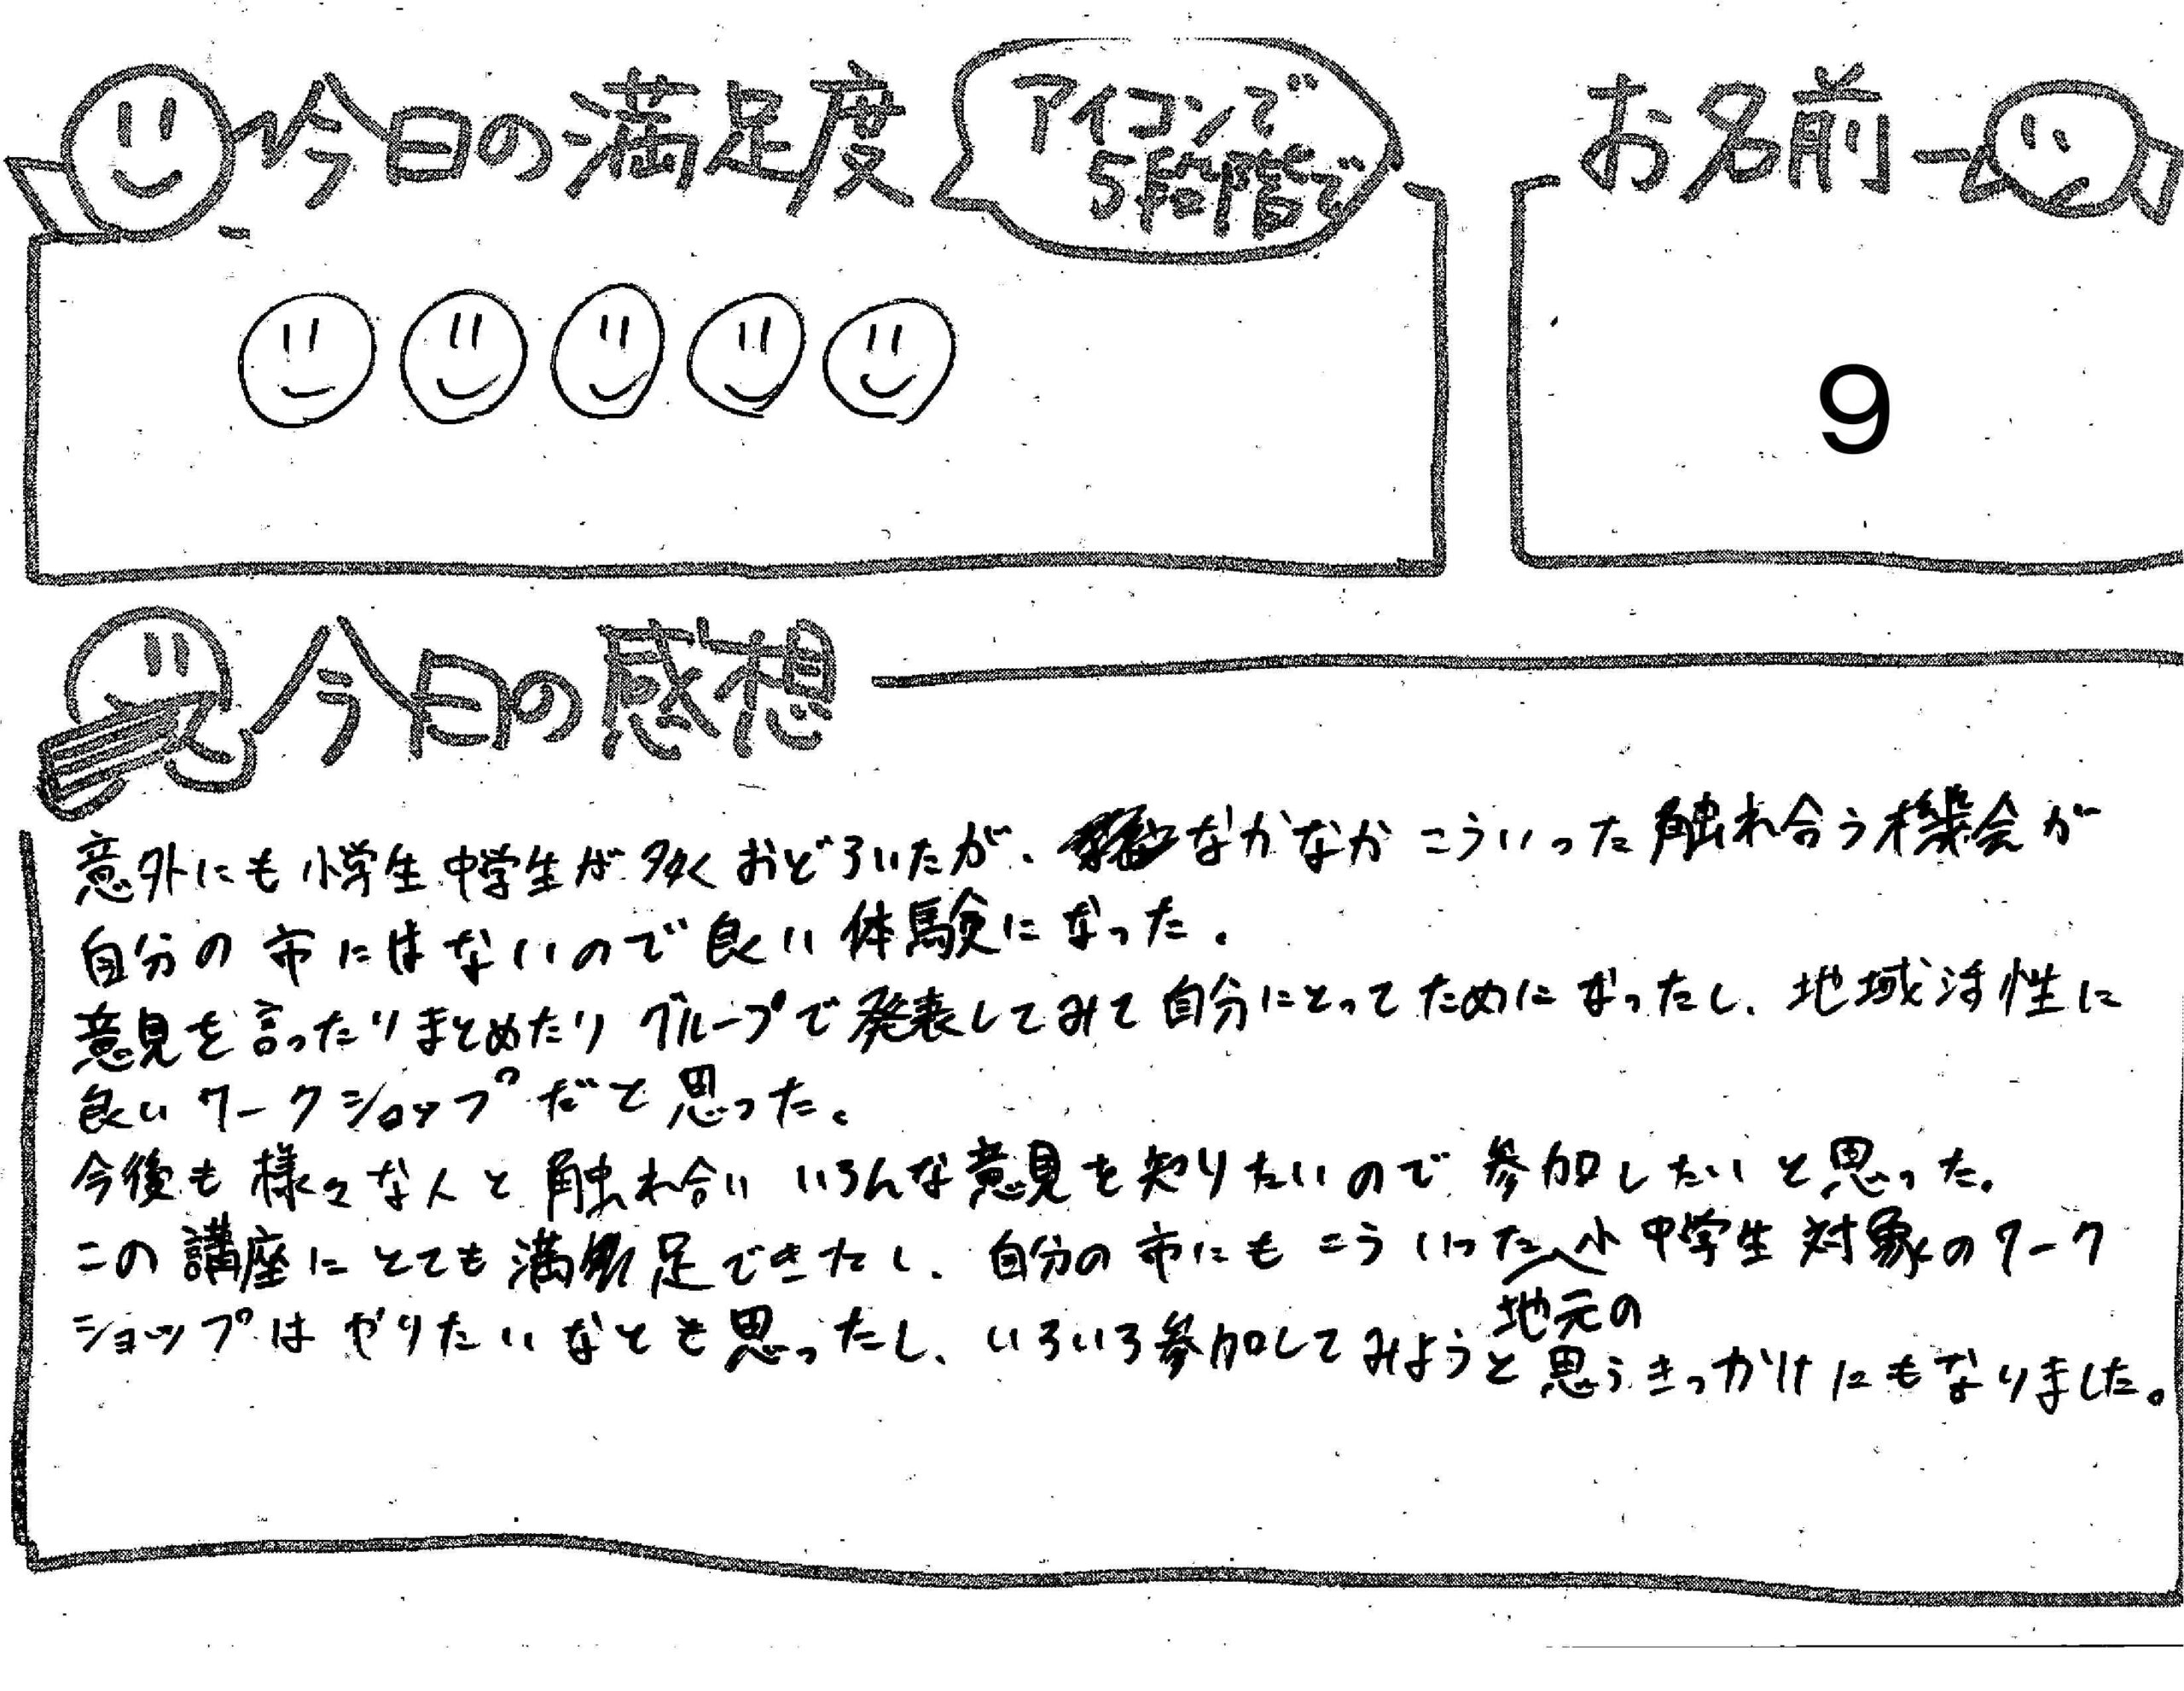 今日の満足度
アイコンで
5段階で
お名前
9
今日の感想
意外にも小学生中学生が多くおどろいたが、なかなかこういった触れ合う機会が
自分の市にはないので良い体験になった。
意見を言ったりまとめたりグループで発表してみて自分にとってためになったし、地域活性に
良いワークショップだと思った。
今後も様々な人と触れ合いいろんな意見を知りたいので参加したいと思った。
この講座にとても満足できたし、自分の市にもこういった小中学生対象のワーク
地元の
ショップはやりたいなとも思ったし、いろいろ参加してみようと思うきっかけにもなりました。